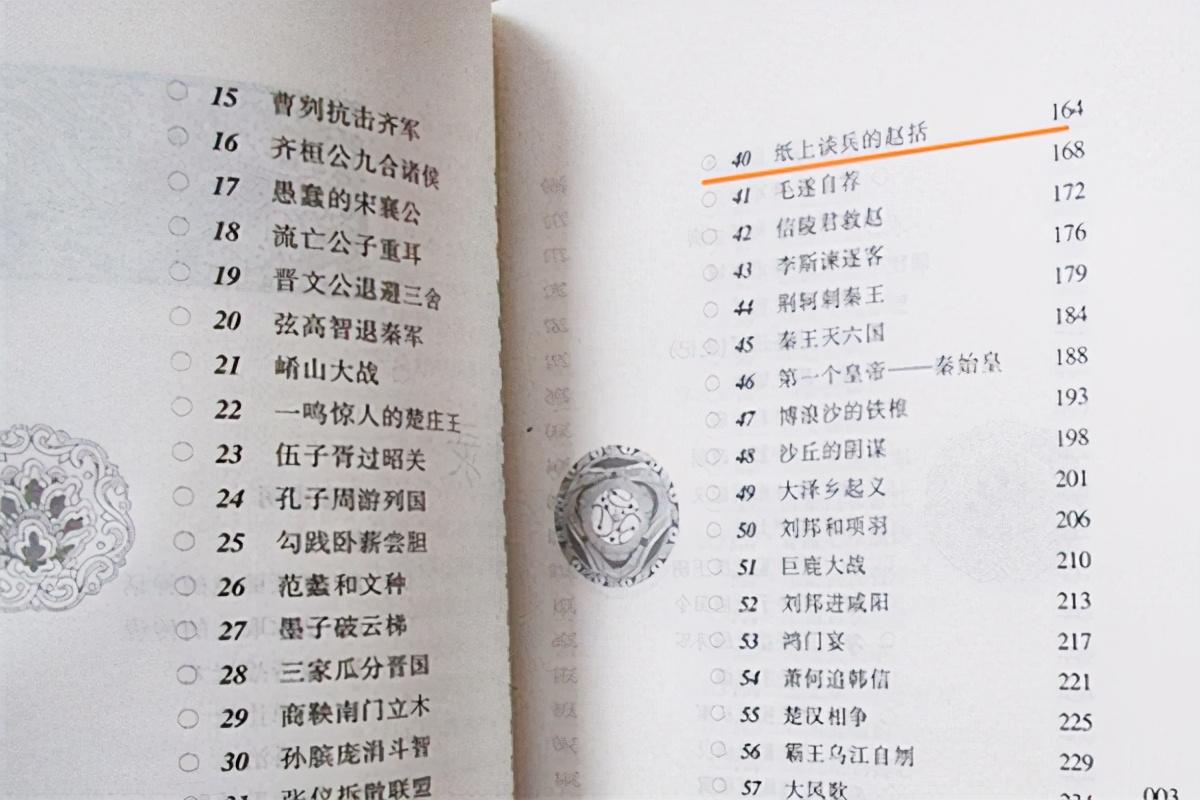 15 曹刿抗击齐军
16 齐桓公九合诸侯
17 愚蠢的宋襄公
18 流亡公子重耳
19 晋文公退避三舍
20 弦高智退秦军
21 崤山大战
22 一鸣惊人的楚庄王
23 伍子胥过昭关
24 孔子周游列国
25 勾践卧薪尝胆
26 范蠡和文种
27 墨子破云梯
28 三家瓜分晋国
29 商鞅南门立木
30 孙膑庞涓斗智
31 张仪拆散联盟
40 纸上谈兵的赵括 164
41 毛遂自荐 168
42 信陵君救赵 172
43 李斯谏逐客 176
44 荆轲刺秦王 179
45 秦王灭六国 184
46 第一个皇帝——秦始皇 188
47 博浪沙的铁椎 193
48 沙丘的阴谋 198
49 大泽乡起义 201
50 刘邦和项羽 206
51 巨鹿大战 210
52 刘邦进咸阳 213
53 鸿门宴 217
54 萧何追韩信 221
55 楚汉相争 225
56 霸王乌江自刎 229
57 大风歌 234
003